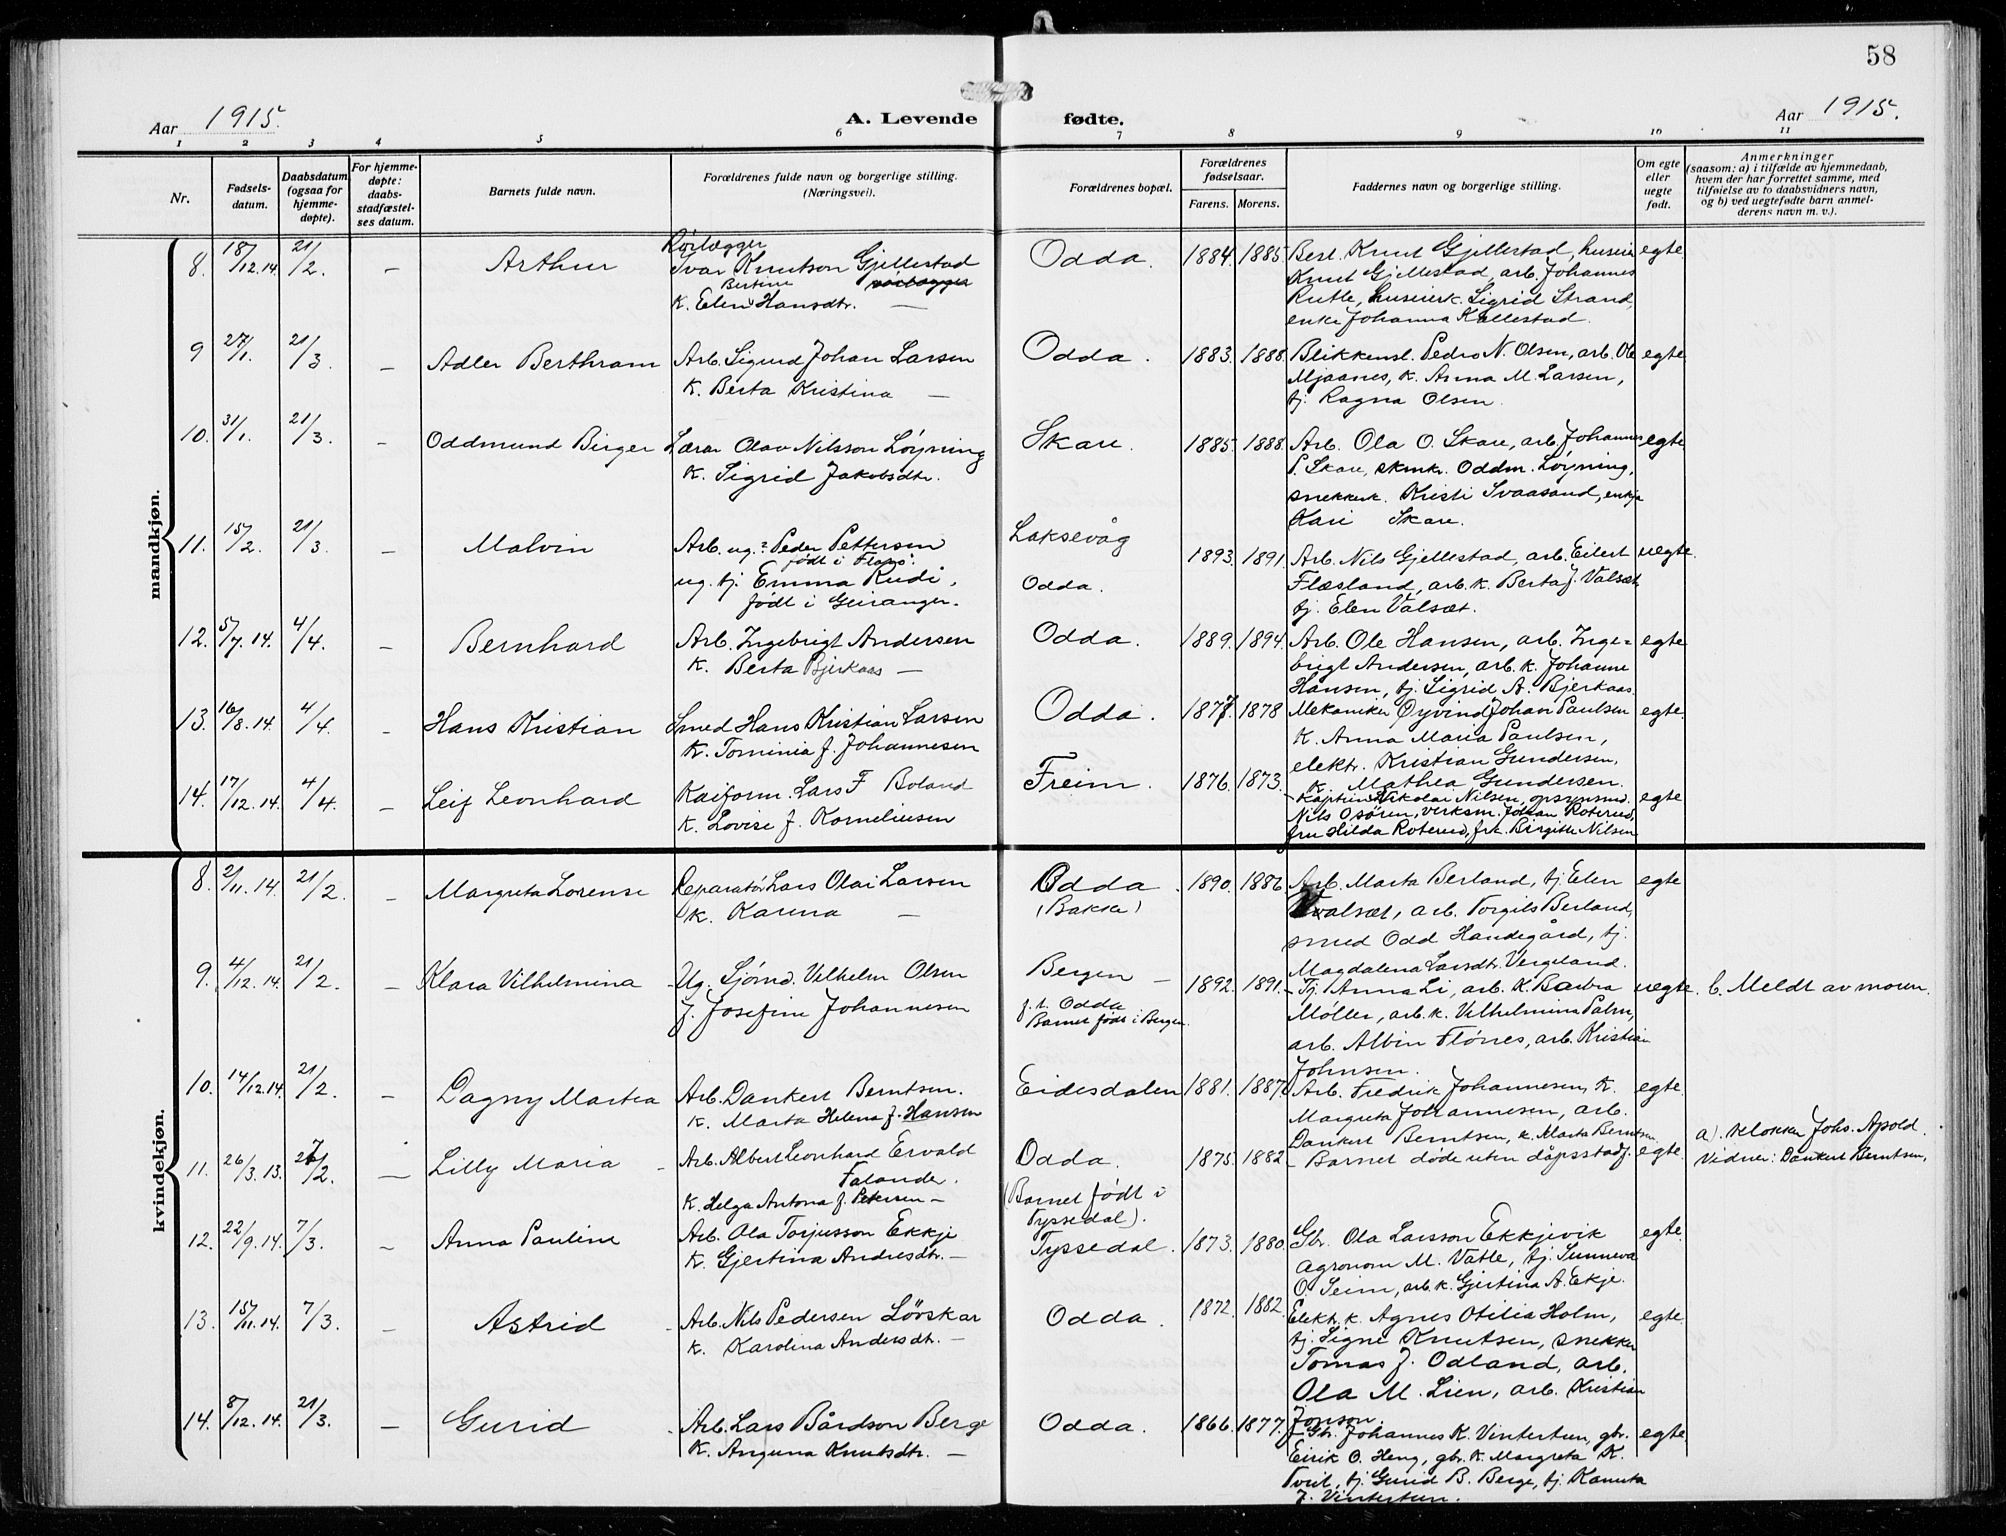 58
Aar 1915.
A. Levende fødte.
Aar 1915.
1 2 3 4 5 6 7 8 9 10 11
Nr.
Fødsels-
datum.
Daabsdatum
(ogsaa for
hjemme-
døpte).
For hjemme-
døpte:
daabs-
stadfæstel-
ses datum.
Barnets fulde navn.
Forældrenes fulde navn og borgerlige stilling.
(Næringsvei).
Forældrenes bopæl.
Forældrenes
fødselsaar.
Farens. Morens.
Faddernes navn og borgerlige stilling.
Om egte
eller
uegte
født.
Anmerkninger
(saasom: a) i tilfælde av hjemmedaab,
hvem der har forrettet samme, med
tilføielse av to daabsvidners navn,
og b) ved uegtefødte barn anmel-
derens navn m. v.).
mandkjøn.
8. 18/12.14. 21/2. – Arthur
Rørlægger
Ivar Knutson Gjellestad
Bertine rørlægger
K. Elen Hansdtr. —
Odda. 1884. 1885.
Best. Knut Gjellestad, huseier
Knut Gjellestad, arb. Johannes
Rutle, huseierk. Sigrid Strand,
enke Johanna Kallestad.
egte.
9 27/1. 21/3. – Adler Berthram
Arb. Sigurd Johan Larsen
K. Berta Kristina —
Odda. 1883. 1888.
Blikkensl. Pedro N. Olsen, arb. Ole
Mjaanes, K. Anna M. Larsen,
tj. Ragna Olsen.
egte.
10. 31/1. 21/3. – Oddmund Birger
Lærar Olav Nilsson Løyning
K. Sigrid Jakobsdtr.
Skare. 1885. 1888.
Arb. Ola O. Skare, arb. Johannes
P. Skare, skmkr. Oddm. Løyning,
snekkerk. Kristi Svaasand, enkja
Kari Skare.
egte.
11. 15/2. 21/3. – Malvin
Arb. ug. Peder Pettersen
født i Florø.
ug. tj. Emma Rudi,
født i Geiranger.
Laksevåg
Odda.
1893. 1891.
Arb. Nils Gjellestad, arb. Eilert
Flæsland, arb. k. Berta J. Valsæt,
tj. Elen Valsæt.
uegte.
12. 5/7.14. 4/4. – Bernhard
Arb. Ingebrigt Andersen
K. Berta Bjerkaas —
Odda. 1889. 1894.
Arb. Ole Hansen, arb. Inge=
brigt Andersen, arb. k. Johanne
Hansen, tj. Sigrid A. Bjerkaas.
egte
13. 16/8.14. 4/4. – Hans Kristian
Smed Hans Kristian Larsen
K. Tominia f. Johannesen
Odda. 1877. 1878
Mekaniker Øyvind Johan Paulsen
K. Anna Maria Paulsen,
elektr. Kristian Gundersen,
K. Mathea Gundersen.
egte.
14. 17/12.14. 4/4. – Leif Leonhard
Kaiform. Lars F Boland
K. Lovise f. Korneliusen
Freim. 1876. 1873.
Kaptein Nikolai Nilsen, opsynsmd.
Nils Osøren, verksm. Johan Roterud,
fru Hilda Roterud, frk. Birgitte Nilsen
egte
kvindekjøn.
8. 2/11.14. 21/2. – Margreta Lorense
Reparatør Lars Olai Larsen
K. Karena —
Odda.
(Bakke)
1890. 1886.
Arb. Marta Berland, tj. Elen
Valsæt, arb. Torgils Berland,
smed Odd Handegård, tj.
Magdalena Larsdtr. Vergeland.
egte
9. 4/12.14. 21/2. – Klara Vilhelmina
Ug. Sjømd. Vilhelm Olsen
f. Josefine Johannesen
Bergen —
f. t. Odda
Barnet født i Bergen.
1892. 1891.
Tj. Anna Li, arb. K. Barbra
Møller, arb. k. Vilhelmina Palm,
arb. Albin Flønes, arb. Kristian
Johnsen.
uegte. b. Meldt av moren.
10. 14/12.14. 21/2. – Dagny Martea
Arb. Dankert Berntsen.
K. Marta Helena f. Hansen
Eidesdalen 1881. 1887.
Arb. Fredrik Johannesen, K.
Margreta Johannesen, arb.
Dankert Berntsen, k. Marta Berntsen.
egte.
11. 26/3.13. 27/2. – Lilly Maria
Arb. Albert Leonhard Ervald
Falander.
K. Helga Antona f. Petersen —
Odda.
(Barnet født i
Tyssedal).
1875. 1882.
– Barnet døde uten dåpsstadf.
egte.
a). Klokker Johs. Apold.
Vidner: Dankert Berntsen,
12. 22/9.14. 7/3. – Anna Pauline
Arb. Ola Torjusson Ekkje
K. Gjertina Andresdtr. —
Tyssedal. 1873. 1880.
Gbr. Ola Larsson Ekkjevik
agronom M. Vatle, tj. Sunneva
O. Seim, arb. k. Gjertina A. Ekje.
egte.
13. 15/11.14. 7/3. – Astrid
Arb. Nils Pedersen Løvskar
K. Karolina Andersdtr. —
Odda. 1872. 1882.
Elekt. k. Agnes Otilia Holm,
tj. Signe Knutsen, snekker
Tomas J. Odland, arb.
Ola M. Lien, arb. Kristian
Jonson.
egte.
14. 8/12.14. 21/3. – Gurid
Arb. Lars Bårdson Berge
K. Anguna Knutsdtr. —
Odda. 1866. 1877.
Gbr. Johannes K. Vintertun, gbr.
Eirik O. Heng, gbr. k. Margreta K.
Tveit, tj. Gurid B. Berge, tj. Kanuta
J. Vintertun.
egte.